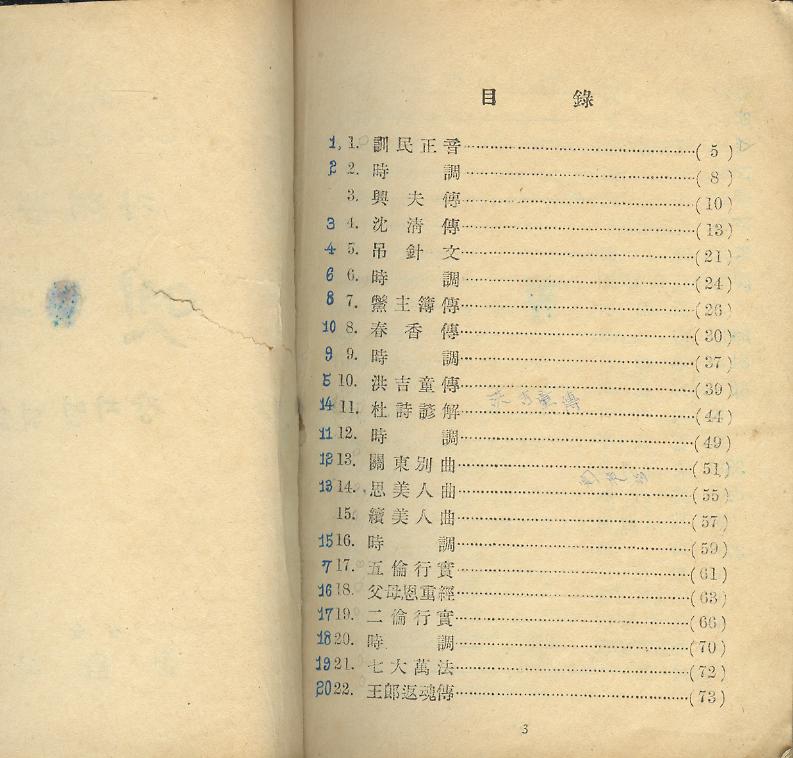 目 錄
1, 1. 訓民正音 (5)
2 2. 時調 (8)
3. 興夫傳 (10)
3 4. 沈淸傳 (13)
4 5. 吊針文 (21)
6 6. 時調 (24)
8 7. 鱉主簿傳 (26)
10 8. 春香傳 (30)
9 9. 時調 (37)
5 10. 洪吉童傳 (39)
14 11. 杜詩諺解 (44)
11 12. 時調 (49)
12 13. 關東別曲 (51)
13 14. 思美人曲 (55)
15. 續美人曲 (57)
15 16. 時調 (59)
7 17. 五倫行實 (61)
16 18. 父母恩重經 (63)
17 19. 二倫行實 (66)
18 20. 時調 (70)
19 21. 七大萬法 (72)
20 22. 王郞返魂傳 (73)
3